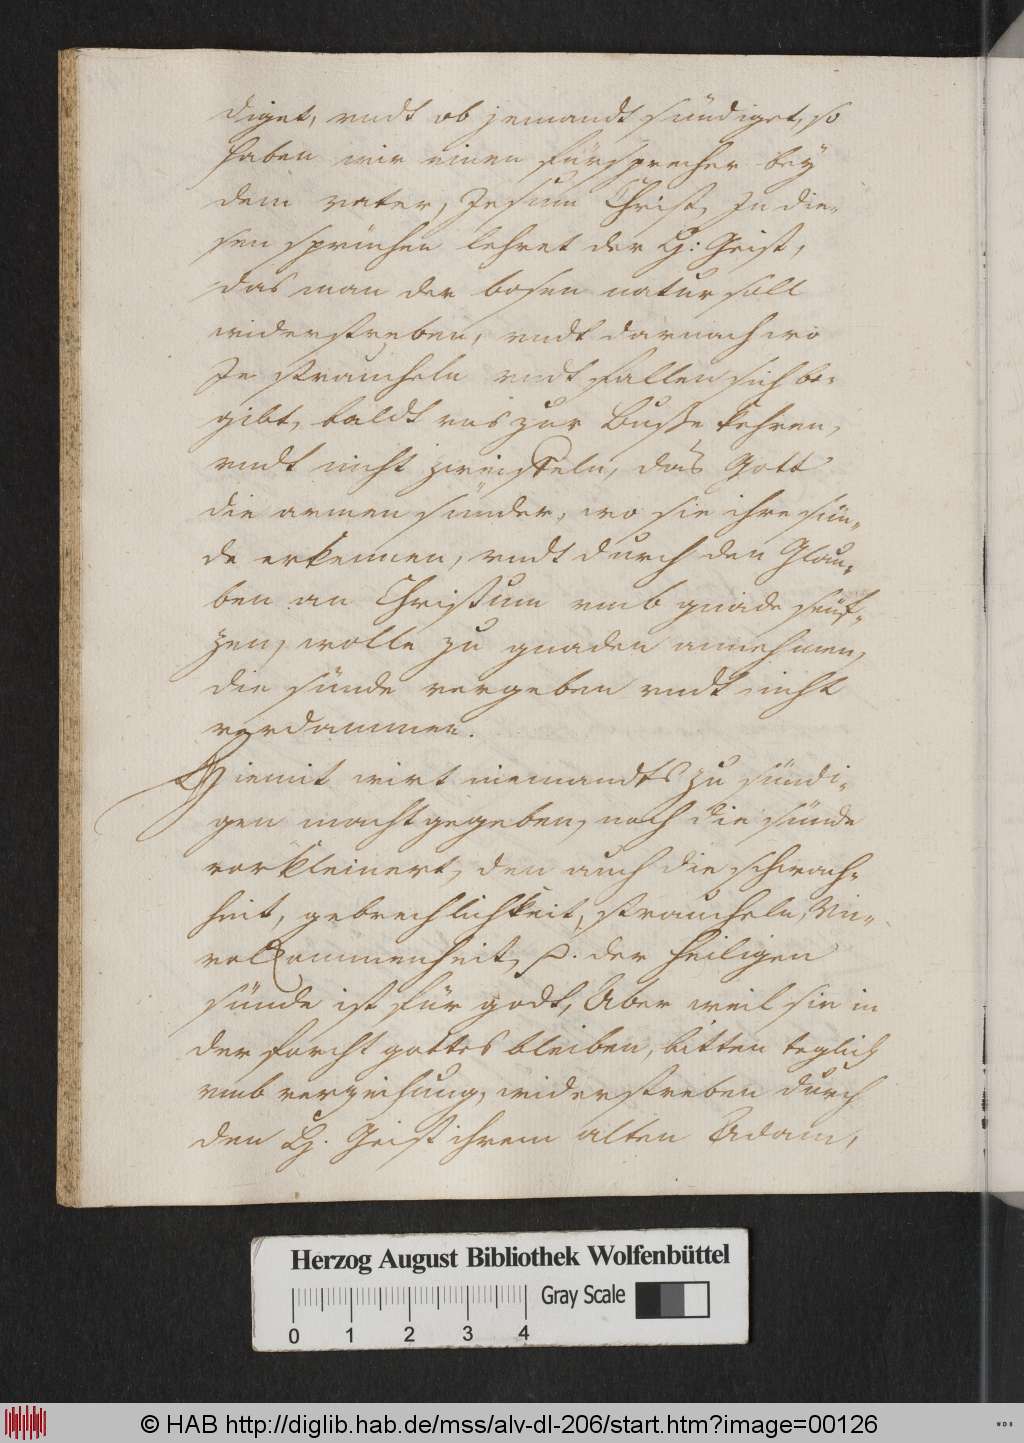 diget, vndt ob jemandt sündiget, so
haben wir einen fürsprecher bey
dem vater, Jesum Christ, In die-
sen sprüchen lehret der H: Geist,
das man der bosen natur soll
widerstreben, vndt darnach wo
Je straucheln vndt fallen sich be-
gibt, baldt vns zur Busse kehren,
vndt nicht zweiffeln, das Gott
die armen sünder, wo sie ihre sün-
de erkennen, vndt durch den Glau-
ben an Christum vmb gnade seuf-
zen, wolle zu gnaden annehmen,
die sünde vergeben vndt nicht
verdammen.
Hiemit wirt niemandts zu sündi-
gen macht gegeben, noch die sünde
vorkleinert, den auch die schwach-
heit, gebrechlichkeit, straucheln, Vn-
volkommenheit, p. der heiligen
sünde ist für godt, Aber weil sie in
der forcht gottes bleiben, bitten teglich
vmb verzeihung, widerstreben durch
den H. Geist ihrem alten Adam,
Herzog August Bibliothek Wolfenbüttel
Gray Scale
0 1 2 3 4
© HAB http://diglib.hab.de/mss/alv-dl-206/start.htm?image=00126